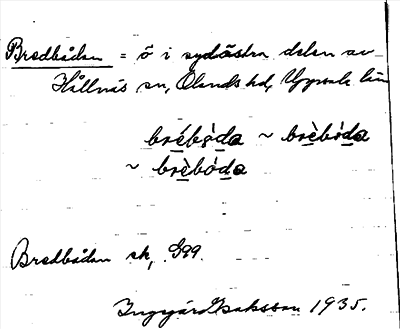 Bredbådan = ö i sydöstra delen av
Hållnäs sn, Olands hd, Uppsala län
brébòda ~ brèbòda
~ brèbóda
Bredbådan sk, G99.
Ingegärd Isaksson 1935.